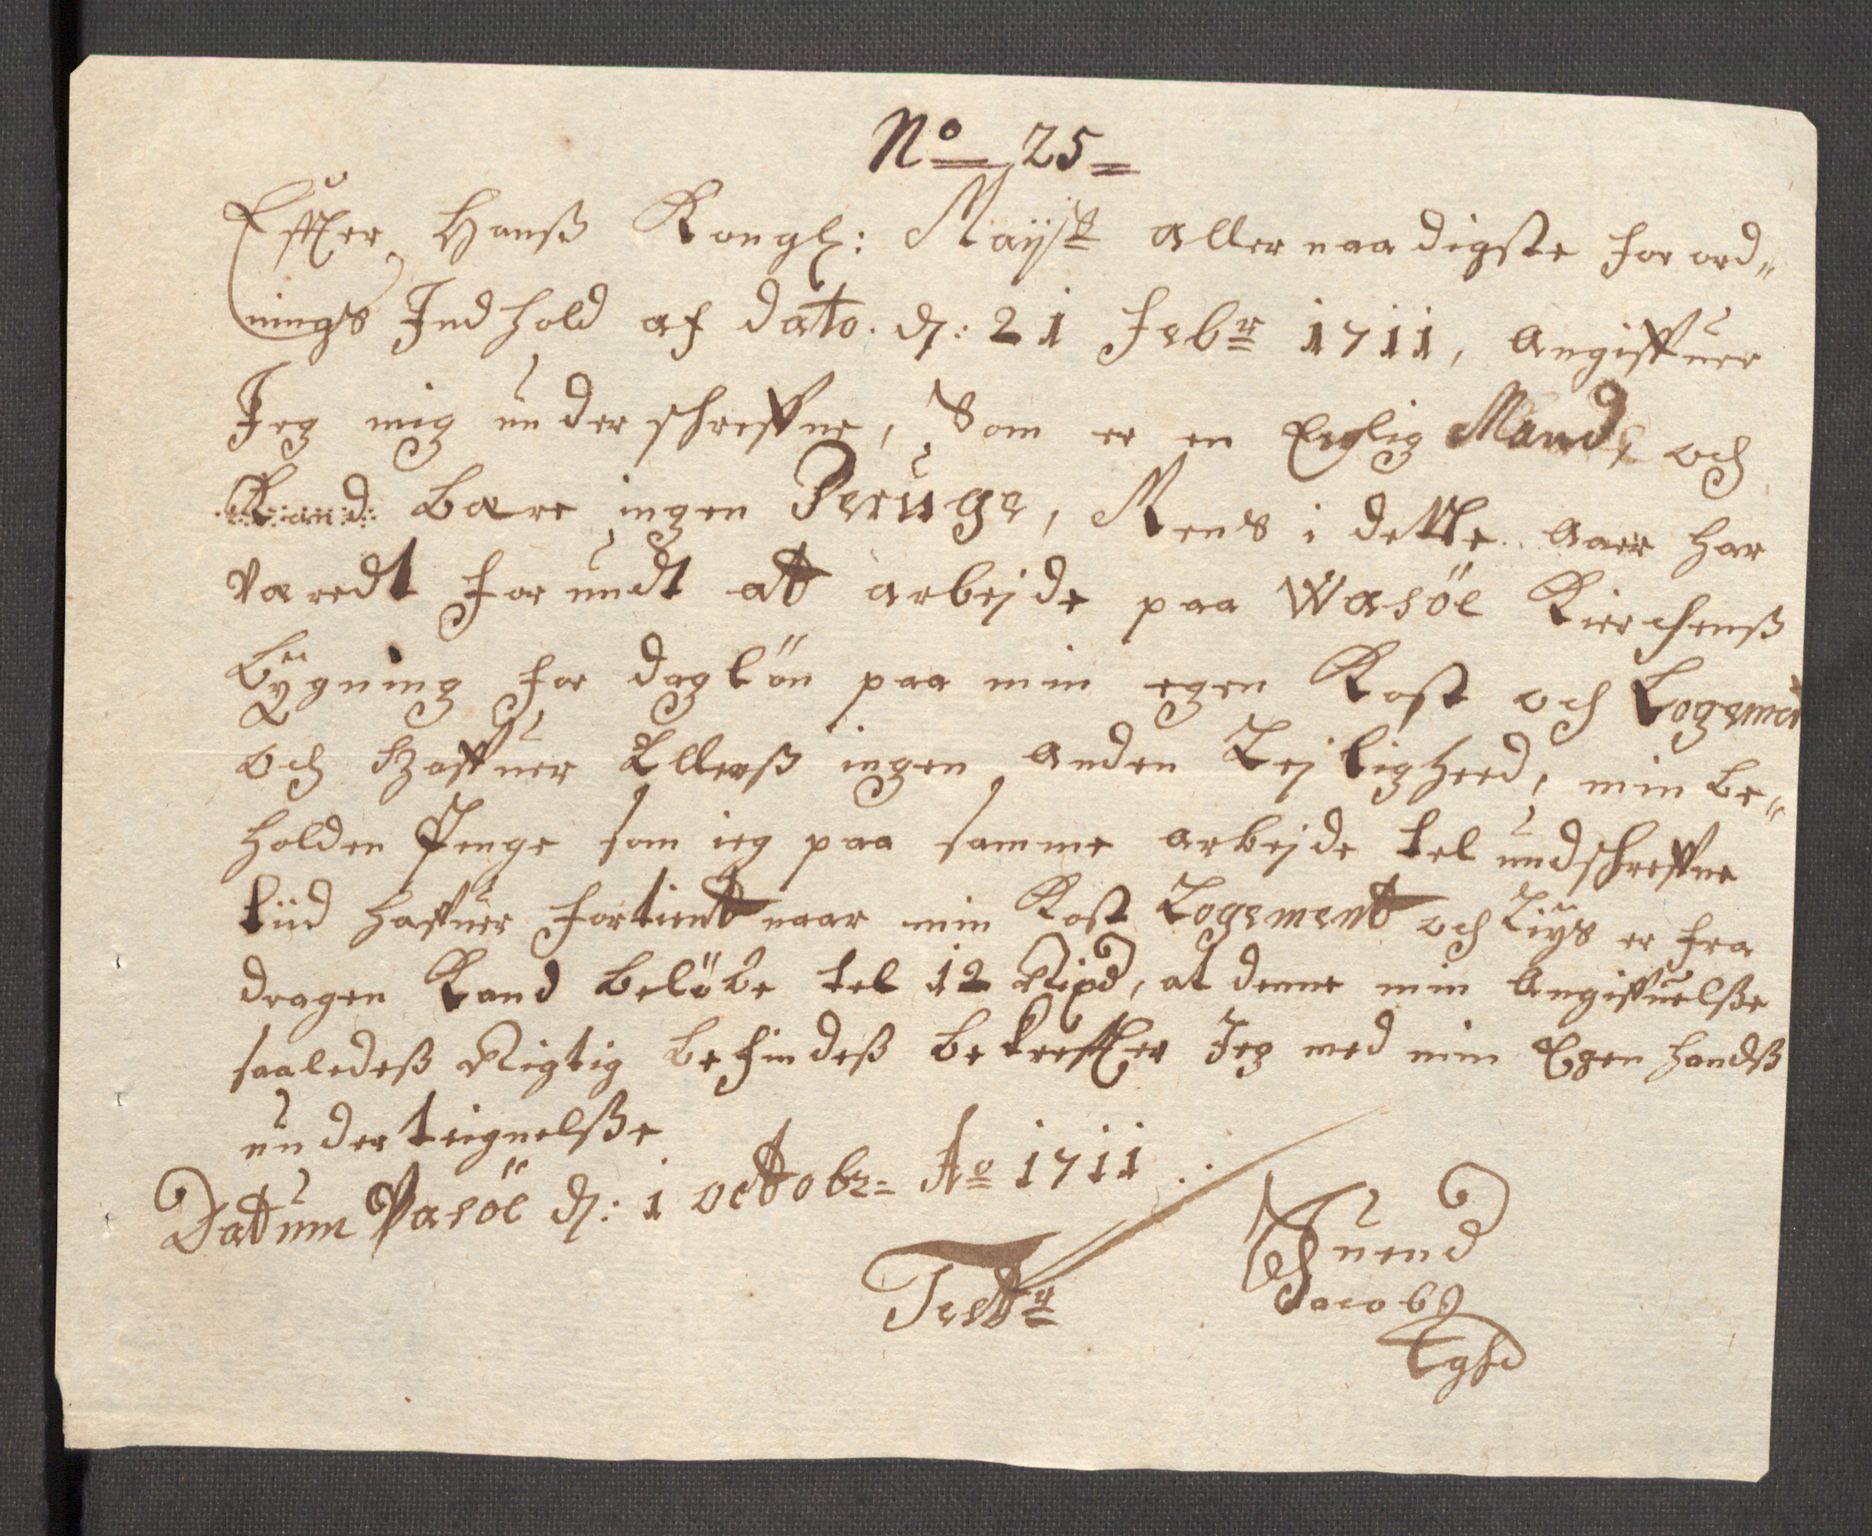 No 25
Effter Hanß Kongl: Mayst allernaadigste forord„
nings Indhold af dato. d: 21 Febr 1711, angiffuer
Jeg mig underschreffne, Som er en Eyslig Mand, och
Kand bære ingen Peruge, Mens i dette aar har
væredt forundt att arbejde paa Wasöe Kirchenß
bÿgning for daglön paa min egen Kost och Logement
och Haffuer Ellerß ingen anden Lejligheed, min be„
holden Penge som ieg paa samme arbejde tel undschreffne
tiid haffuer fortient naar min Kost Logement och Liys er fra
dragen Kand belöbe tel 12 Rixd, at denne min Angiffuelße
saaledeß Rigtig befindeß bekreffter Jeg med min Egen handß
underteignelße
Dattum Vasöe d: 1 octtobr Ao 1711.
Suend
Jacobs